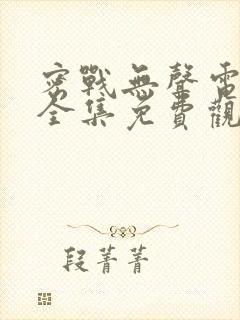 密戰無聲電
全集免費觀
段菁菁